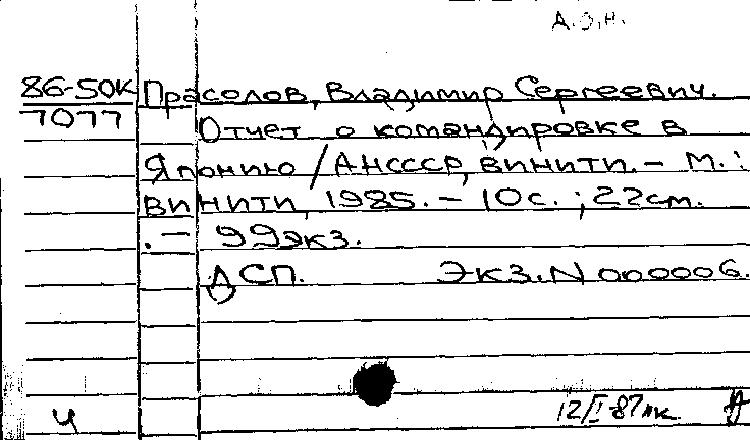 А.О.Н.
86-50К
7077
Прасолов, Владимир Сергеевич.
Отчет о командировке в
Японию / АН СССР, ВИНИТИ. - М. :
ВИНИТИ, 1985. - 10 с. ; 22 см.
. - 99 экз.
ДСП. Экз. N 000006.
Ч 12/I-87